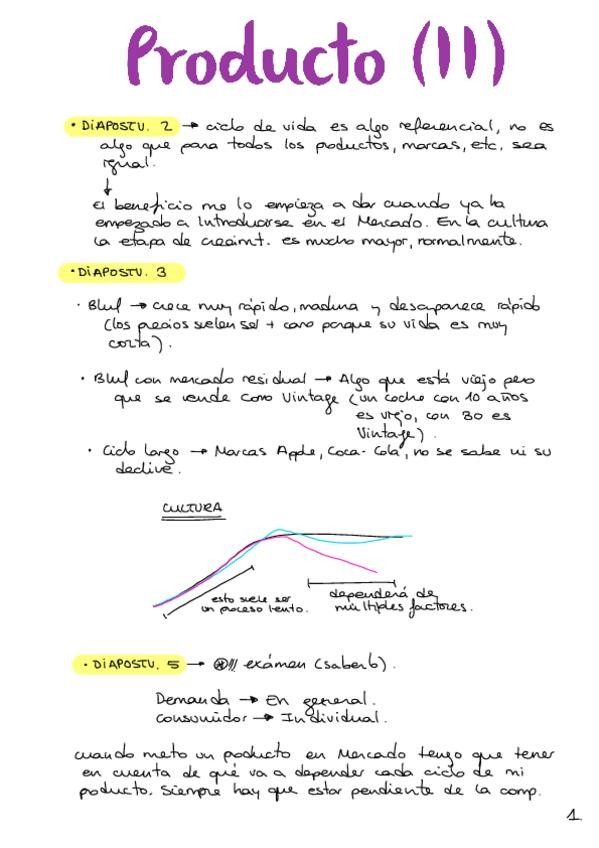 Producto (II)
• DIAPOSTV. 2 → ciclo de vida es algo referencial, no es
algo que para todos los productos, marcas, etc. sea
igual.
↓
El beneficio me lo empieza a dar cuando ya ha
empezado a Introducirse en el Mercado. En la cultura
la etapa de crecimt. es mucho mayor, normalmente.
• DIAPOSTV. 3
• Bluf → crece muy rápido, madura y desaparece rápido
(los precios suelen ser + caro porque su vida es muy
corta).
• Bluf con mercado residual → Algo que está viejo pero
que se vende como Vintage (un coche con 10 años
es viejo, con 30 es
Vintage).
• Ciclo largo → Marcas Apple, Coca-Cola, no se sabe ni su
declive.
CULTURA
esto suele ser
un proceso lento.
dependerá de
múltiples factores.
• DIAPOSTV. 5 → exámen (saberlo).
Demanda → En general.
Consumidor → Individual.
cuando meto un producto en Mercado tengo que tener
en cuenta de qué va a depender cada ciclo de mi
producto. Siempre hay que estar pendiente de la comp.
1.